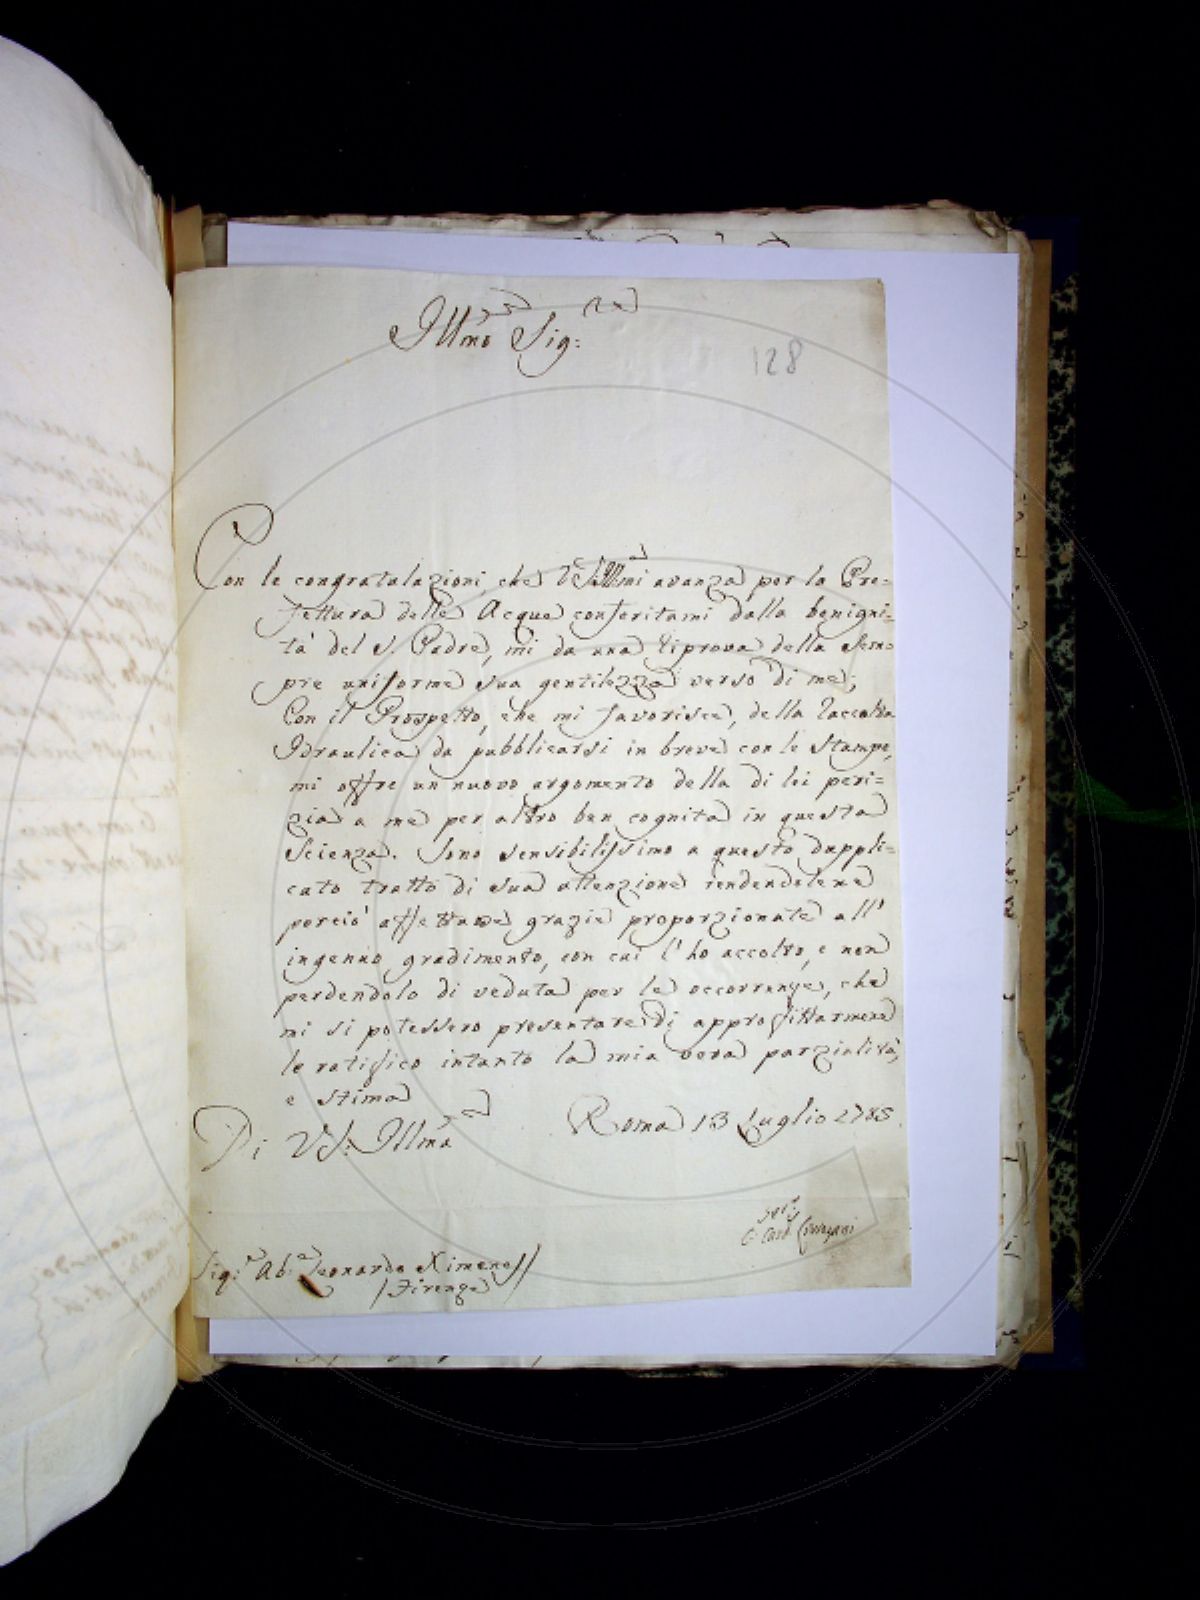 Illmo Sig:re
128
Con le congratulazioni, che VS. Illma mi avanza per la Pre=
fettura delle Acque conferitami dalla benigni=
tà del S. Padre, mi da una riprova della sem=
pre uniforme sua gentilezza verso di me;
Con il Prospetto, che mi favorisce, della raccolta
Idraulica da pubblicarsi in breve con le stampe,
mi offre un nuovo argomento della di lei peri=
zia a me per altro ben cognita in questa
Scienza. Sono sensibilissimo a questo duppli=
cato tratto di sua attenzione rendendolene
perciò affettuose grazie proporzionate all'
ingenuo gradimento, con cui l'ho accolto, e non
perdendolo di veduta per le occorrenze, che
mi si potessero presentare di approfittarmene
le ratifico intanto la mia vera parzialità,
e stima
Di VS. Illma
Roma 13 Luglio 1785.
Ser:
C. Card.
Sig:r Ab:e Leonardo Ximenes//
/Firenze/